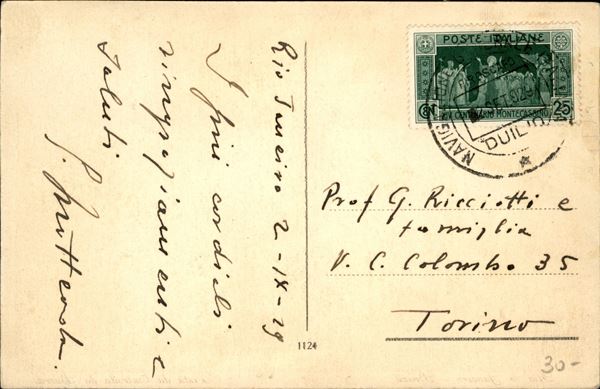 Rio Janeiro 2-IX-29
I più cordiali
ringraziamenti e
saluti
G.
POSTE ITALIANE
XIV CENTENARIO MONTECASSINO
25
DUILIO
Prof G. Ricciotti e
famiglia
V. C. Colombo 35
Torino
1124
30-